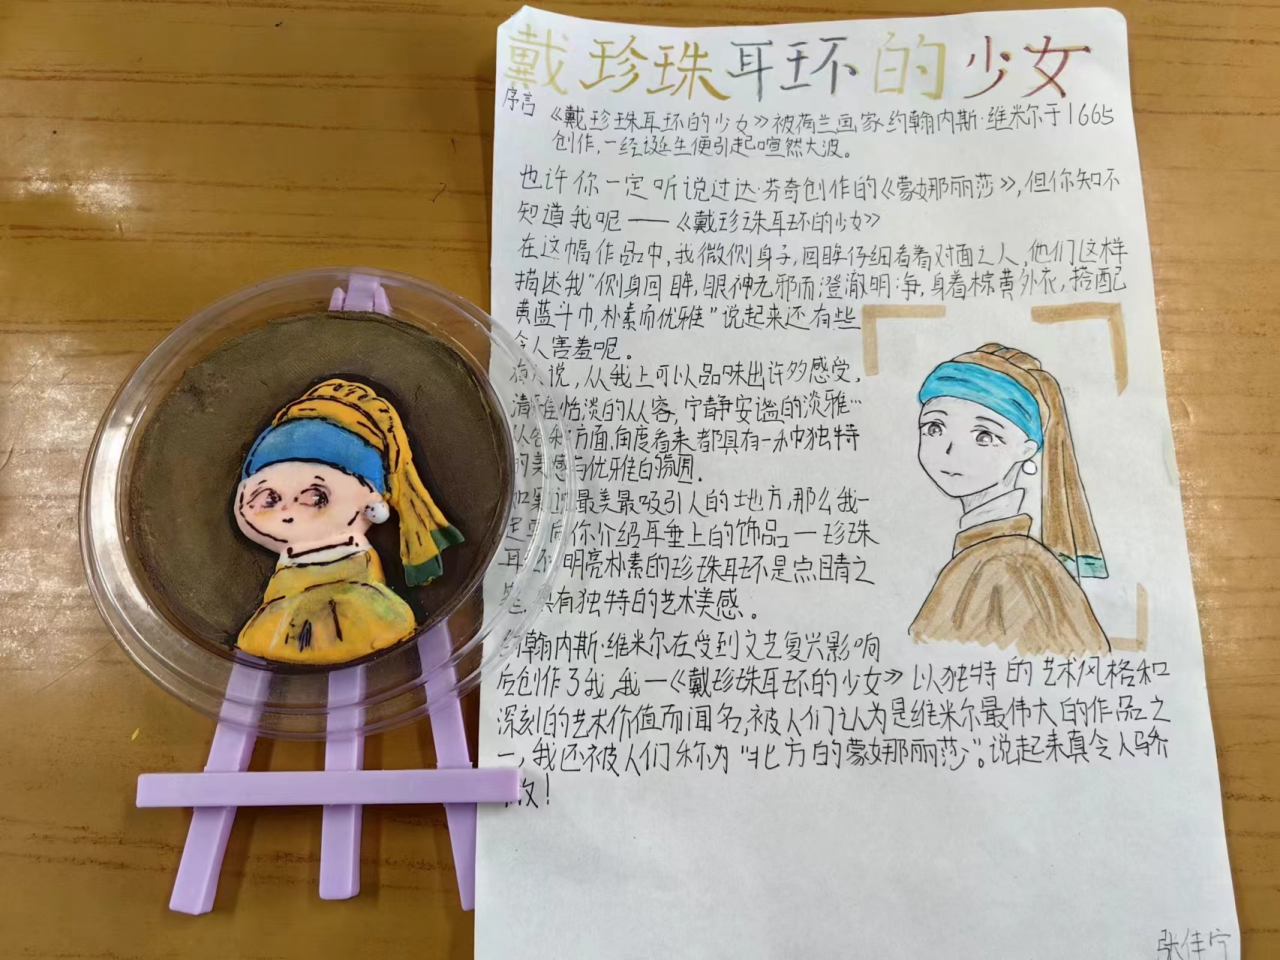 戴珍珠耳环的少女
序言
《戴珍珠耳环的少女》被荷兰画家约翰内斯·维米尔于1665
创作,一经诞生便引起喧然大波。
也许你一定听说过达·芬奇创作的《蒙娜丽莎》,但你知不
知道我呢——《戴珍珠耳环的少女》
在这幅作品中,我微侧身子,回眸仔细看着对面之人,他们这样
描述我"侧身回眸,眼神无邪而澄澈明净,身着棕黄外衣,搭配
黄蓝头巾,朴素而优雅"说起来还有些
令人害羞呢。
有人说,从我上可以品味出许多感受,
清雅恬淡的从容,宁静安谧的淡雅…
从各种方面,角度看来都具有一种独特
的美感与优雅的氛围。
如果说最美最吸引人的地方,那么我一
定要向你介绍耳垂上的饰品—珍珠
耳环,明亮朴素的珍珠耳环是点睛之
笔,具有独特的艺术美感。
约翰内斯·维米尔在受到文艺复兴影响
后创作了我,我—《戴珍珠耳环的少女》以独特的艺术风格和
深刻的艺术价值而闻名,被人们认为是维米尔最伟大的作品之
一,我还被人们称为"北方的蒙娜丽莎"。说起来真令人骄
傲!
张佳宁